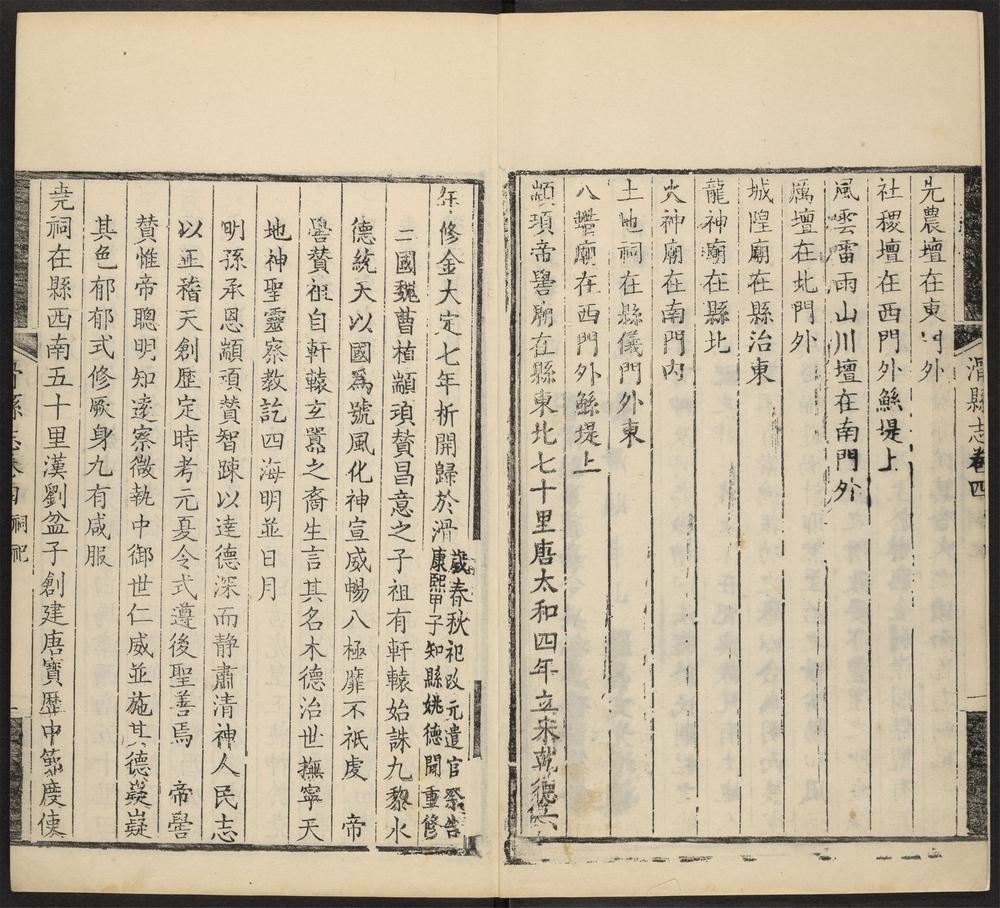 滑縣志卷四
先農壇在東門外
社稷壇在西門外鯀堤上
風雲雷雨山川壇在南門外
厲壇在北門外
城隍廟在縣治東
龍神廟在縣北
火神廟在南門內
土地祠在縣儀門外東
八蜡廟在西門外鯀堤上
顓頊帝嚳廟在縣東北七十里唐太和四年立宋乾德六
年修金大定七年析開歸於滑
歲春秋祀改元遣官祭告
康熙甲子知縣姚德聞重修
二國魏曹植顓頊贊昌意之子祖有軒轅始誅九黎水
德統天以國為號風化神宣威暢八極靡不祇虔 帝
嚳贊祖自軒轅玄囂之裔生言其名木德治世撫寧天
地神聖靈察教訖四海明並日月
明孫承恩顓頊贊智踈以達德深而静肅清神人民志
以正稽天創歷定時考元夏令式遵後聖善焉 帝嚳
贊惟帝聰明知遠察微執中御世仁威並施其德嶷嶷
其色郁郁式修厥身九有咸服
堯祠在縣西南五十里漢劉盆子創建唐寶歷中節度使
滑縣志卷四 祠祀